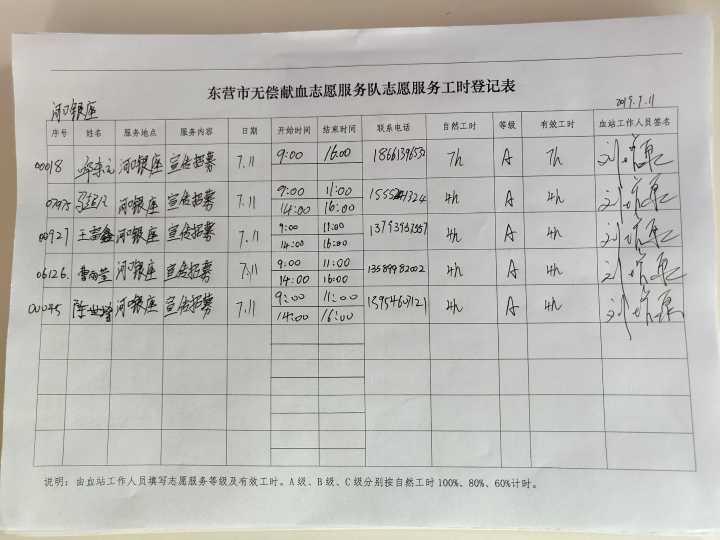 东营市无偿献血志愿服务队志愿服务工时登记表
河口银座 2019.7.11
序号 姓名 服务地点 服务内容 日期 开始时间 结束时间 联系电话 自然工时 等级 有效工时 血站工作人员签名
00018 河口银座 宣传招募 7.11 9:00 16:00 7h A 7h
河口银座 宣传招募 7.11 9:00 11:00 4h A 4h
14:00 16:00
00927 王富鑫 河口银座 宣传招募 7.11 9:00 11:00 4h A 4h
14:00 16:00
06126. 河口银座 宣传招募 7.11 9:00 11:00 13589982002 4h A 4h
14:00 16:00
00045 河口银座 宣传招募 7.11 9:00 11:00 13954603121 4h A 4h
14:00 16:00
说明：由血站工作人员填写志愿服务等级及有效工时。A级、B级、C级分别按自然工时100%、80%、60%计时。